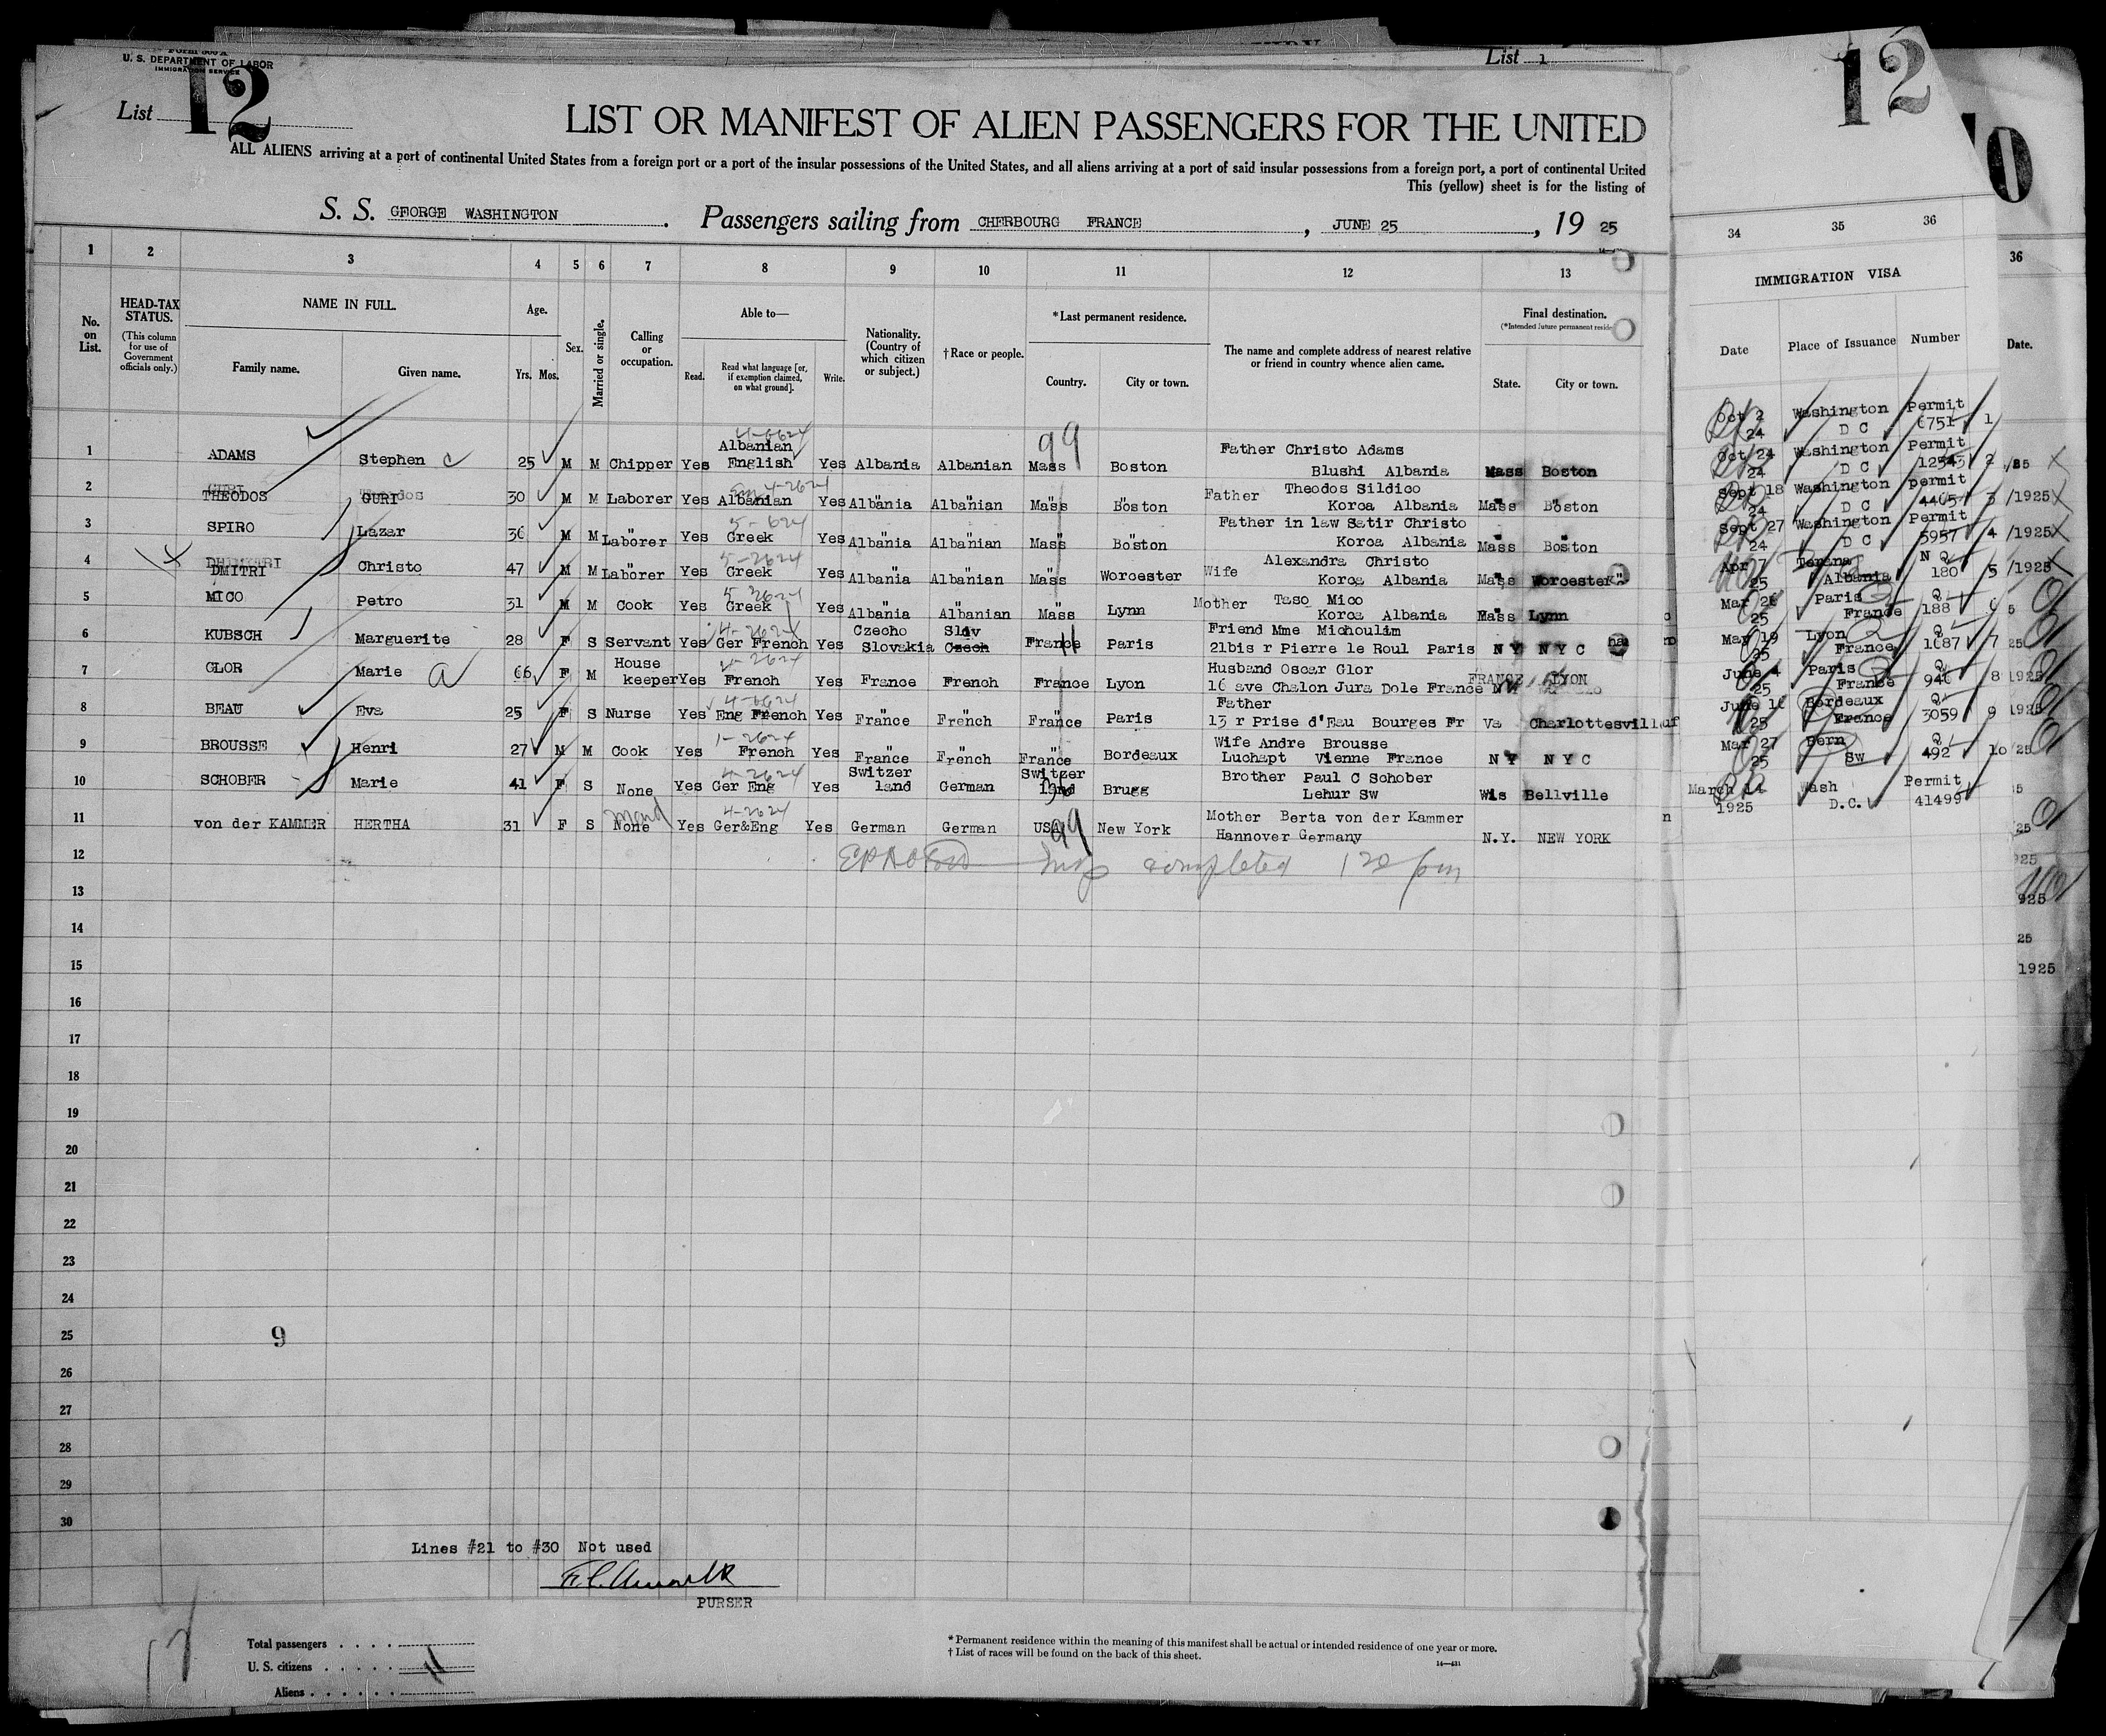 Form 500 A
U. S. DEPARTMENT OF LABOR
IMMIGRATION SERVICE
List 12
List 1
12
0
LIST OR MANIFEST OF ALIEN PASSENGERS FOR THE UNITED
ALL ALIENS arriving at a port of continental United States from a foreign port or a port of the insular possessions of the United States, and all aliens arriving at a port of said insular possessions from a foreign port, a port of continental United
This (yellow) sheet is for the listing of
S. S. GEORGE WASHINGTON . Passengers sailing from CHERBOURG FRANCE , JUNE 25 , 19 25
1 2 3 4 5 6 7 8 9 10 11 12 13 34 35 36 36
No. on List.
HEAD-TAX STATUS.
(This column for use of Government officials only.)
NAME IN FULL.
Family name. Given name.
Age.
Yrs. Mos.
Sex.
Married or single.
Calling or occupation.
Able to—
Read. Read what language [or, if exemption claimed, on what ground]. Write.
Nationality. (Country of which citizen or subject.)
†Race or people.
*Last permanent residence.
Country. City or town.
The name and complete address of nearest relative or friend in country whence alien came.
Final destination.
(*Intended future permanent reside
State. City or town.
IMMIGRATION VISA
Date Place of Issuance Number
Date.
1 ADAMS Stephen 25 M M Chipper Yes Albanian English Yes Albania Albanian Mass Boston Father Christo Adams Blushi Albania Mass Boston Oct 2 24 Washington D C Permit 6751 1
2 THEODOS GURI 30 M M Laborer Yes Albanian Yes Albania Albanian Mass Boston Father Theodos Sildico Korca Albania Mass Boston Oct 24 24 Washington D C Permit 12543 2
3 SPIRO Lazar 36 M M Laborer Yes Greek Yes Albania Albanian Mass Boston Father in law Satir Christo Korca Albania Mass Boston Sept 18 24 Washington D C permit 4405 3 /1925
4 DMITRI Christo 47 M M Laborer Yes Greek Yes Albania Albanian Mass Worcester Wife Alexandra Christo Korca Albania Mass Worcester Sept 27 24 Washington D C Permit 5957 4 /1925
5 MICO Petro 31 M M Cook Yes Greek Yes Albania Albanian Mass Lynn Mother Taso Mico Korca Albania Mass Lynn Apr 7 25 Terana Albania N Q 180 5 /1925
6 KUBSCH Marguerite 28 F S Servant Yes Ger French Yes Czecho Slovakia Slav Czech France Paris Friend Mme Michoulim 21bis r Pierre le Roul Paris N Y N Y C Mar 26 25 Paris France Q 188 6
7 GLOR Marie 66 F M House keeper Yes French Yes France French France Lyon Husband Oscar Glor 16 ave Chalon Jura Dole France FRANCE LYON May 19 25 Lyon France Q 1687 7
8 BEAU Eva 25 F S Nurse Yes Eng French Yes France French France Paris Father 13 r Prise d'Eau Bourges Fr Va Charlottesvill June 4 25 Paris France Q 946 8 1925
9 BROUSSE Henri 27 M M Cook Yes French Yes France French France Bordeaux Wife Andre Brousse Luchapt Vienne France N Y N Y C June 16 25 Bordeaux France Q 3059 9 1925
10 SCHOBER Marie 41 F S None Yes Ger Eng Yes Switzer land German Switzer land Brugg Brother Paul C Schober Lehur Sw Wis Bellville Mar 27 25 Bern Sw Q 492 10
11 von der KAMMER HERTHA 31 F S None Yes Ger&Eng Yes German German USA New York Mother Berta von der Kammer Hannover Germany N.Y. NEW YORK March 14 1925 Wash D.C. Permit 41499
12 completed 1 20 pm
13
14
15 1925
16
17
18
19
20
21
22
23
24
25 9
26
27
28
29
30
Lines #21 to #30 Not used
PURSER
Total passengers
U. S. citizens
Aliens
* Permanent residence within the meaning of this manifest shall be actual or intended residence of one year or more.
† List of races will be found on the back of this sheet.
14—431